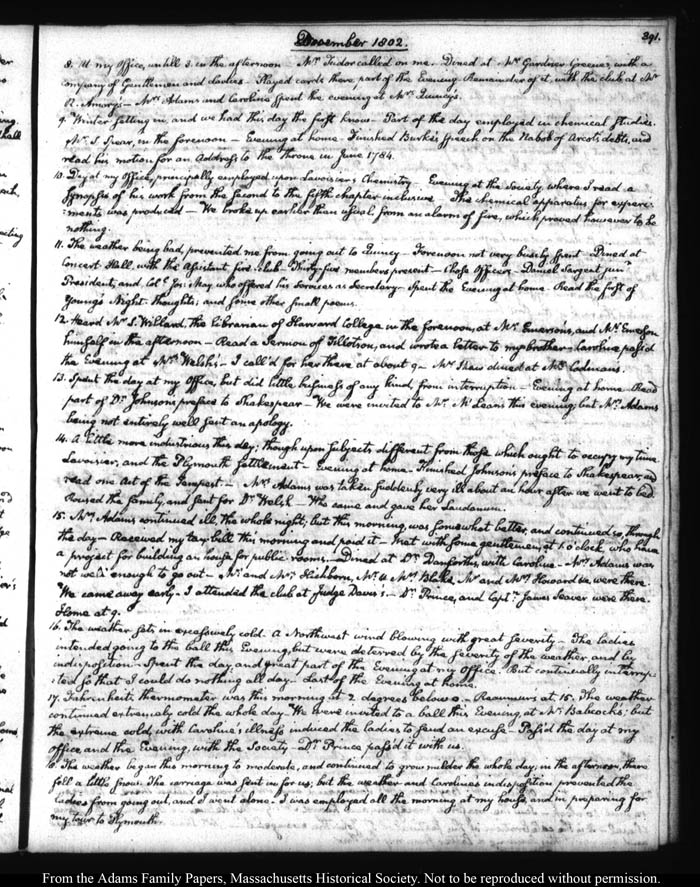 December 1802.
391.
8. At my Office, untill 3. in the afternoon Mr Tudor called on me. Dined at Mr Gardner Greene's, with a
company of Gentlemen and Ladies. Played cards there, part of the Evening. Remainder of it, with the club at Mr
R. Amory's — Mrs Adams and Caroline spent the evening at Mrs Quincy's.
9. Winter setting in, and we had this day the first snow — Part of the day employed in chemical studies.
Mr. S. Spear, in the forenoon — Evening at home — Finished Burke's speech on the Nabob of Arcot's debts, and
read his motion for an Address to the throne in June 1784.
10. Day at my office, principally employed upon Lavoisier's Chemistry. Evening at the Society, where I read a
synopsis of his work from the second to the fifth chapter inclusive. The chemical apparatus for experi-
:ments was produced — We broke up earlier than usual, from an alarm of fire, which proved however to be
nothing.
11. The weather being bad, prevented me from going out to Quincy — Forenoon not very busily spent — Dined at
Concert Hall, with the Assistant fire club. Thirty five members present — Chose Officers — Daniel Sargent junr
President, and Coll. Jos: May, who offered his services as Secretary — Spent the Evening at home. Read the first of
Young's Night-Thoughts, and some other small poems.
12. Heard Mr S. Willard, the librarian of Harvard College, in the forenoon, at Mr. Emerson's, and Mr Emerson
himself in the afternoon — Read a Sermon of Tillotson, and wrote a letter to my brother — Caroline pass'd
the Evening at Mrs Welsh's — I call'd for her there at about 9 — Mr Shaw dined at Mrs Codman's.
13. Spent the day at my Office, but did little business of any kind, from interruption — Evening at home — Read
part of Dr. Johnson's preface to Shakespear — We were invited to Mr. McLean's this evening; but Mrs Adams
being not entirely well sent an apology.
14. A little more industrious this day; though upon subjects different from those which ought to occupy my time
Lavoisier, and the Plymouth settlement — Evening at home. Finished Johnson's preface to Shakespear, and
read one Act of the Tempest — Mrs Adams was taken suddenly very ill about an hour after we went to bed
Roused the family, and sent for Dr Welsh — Who came and gave her Laudanum.
15. Mrs Adams continued ill, the whole night; but this morning, was somewhat better, and continued so, through
the day — Received my tax-bill this morning and paid it — Met with some gentlemen, at 1 o'clock, who have
a project for building an house for public rooms — Dined at Dr. Danforth's, with Caroline — Mrs Adams was
not well enough to go out — Mr. and Mrs. Hichborn, Mr. & Mrs Blake, Mr and Mrs Howard &c, were there.
We came away early — I attended the club at Judge Davis's — Dr. Prince, and Captn James Seaver were there.
Home at 9.
16. The weather sets in excessively cold. A Northwest wind blowing with great severity — The ladies
intended going to the ball this Evening, but were deterred by the severity of the weather, and by
indisposition — Spent the day, and great part of the Evening at my Office. But continually interrup-
:ted so that I could do nothing all day. Last of the Evening at home.
17. Fahrenheit's thermometer was this morning at 2 degrees below 0 — Reaumur's at 15. The weather
continued extremely cold the whole day. We were invited to a ball this Evening, at Mr Babcock's; but
the extreme cold, with Caroline's illness induced the ladies to send an excuse — Pass'd the day at my
office, and the Evening, with the Society — Dr. Prince pass'd it with us.
18. The weather began this morning to moderate, and continued to grow milder the whole day, in the afternoon, there
fell a little snow. The carriage was sent in for us; but the weather and Caroline's indisposition prevented the
ladies from going out, and I went alone. I was employed all the morning at my house, and in preparing for
my tour to Plymouth.
From the Adams Family Papers, Massachusetts Historical Society. Not to be reproduced without permission.